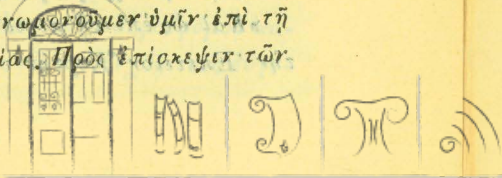 νωμονοῦμεν ὑμῖν ἐπὶ τῇ
ίας. Πρὸς ἐπίσκεψιν τῶν